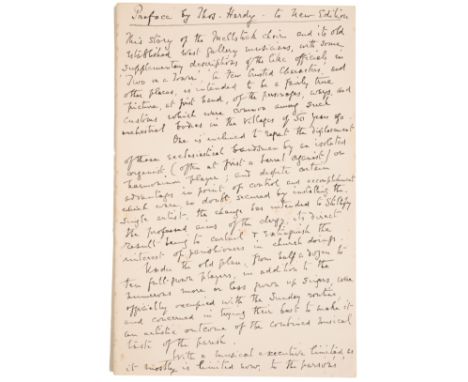 Preface by Thos. Hardy - to New Edition
This story of the Mellstock choir and its old
established west-gallery musicians, with some
supplementary descriptions of the like officials in
'Two on a Tower,' 'A Few Crusted Characters,' and
other places, is intended to be a fairly true
picture, at first hand, of the personages, ways, and
customs which were common among such
orchestral bodies in the villages of 50 years ago.
One is inclined to regret the displacement
of these ecclesiastical bandsmen by an isolated
organist, (often at first a barrel organist) or
harmonium player; and despite certain
advantages in point of control and accomplishment
which were, no doubt secured by installing the
single artist, the change has tended to stultify
the professed aims of the clergy, its direct
result being to curtail & extinguish the
interest of parishioners in church doings.
Under the old plan, from half a dozen to
ten full-grown players, in addition to the
numerous more or less grown up singers, were
officially occupied with the Sunday routine
and concerned in trying their best to make it
an artistic outcome of the combined musical
taste of the parish.
With a musical executive limited, as
it mostly is limited now, to the parsons